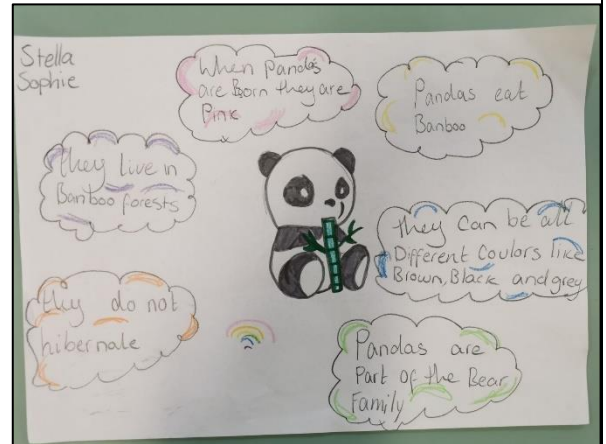 Stella
Sophie
When Pandas
are Born they are
Pink
Pandas eat
Banboo
they live in
Banboo forests
they Can be all
Different Coulors like
Brown, Black and grey
they do not
hibernate
Pandas are
Part of the Bear
Family